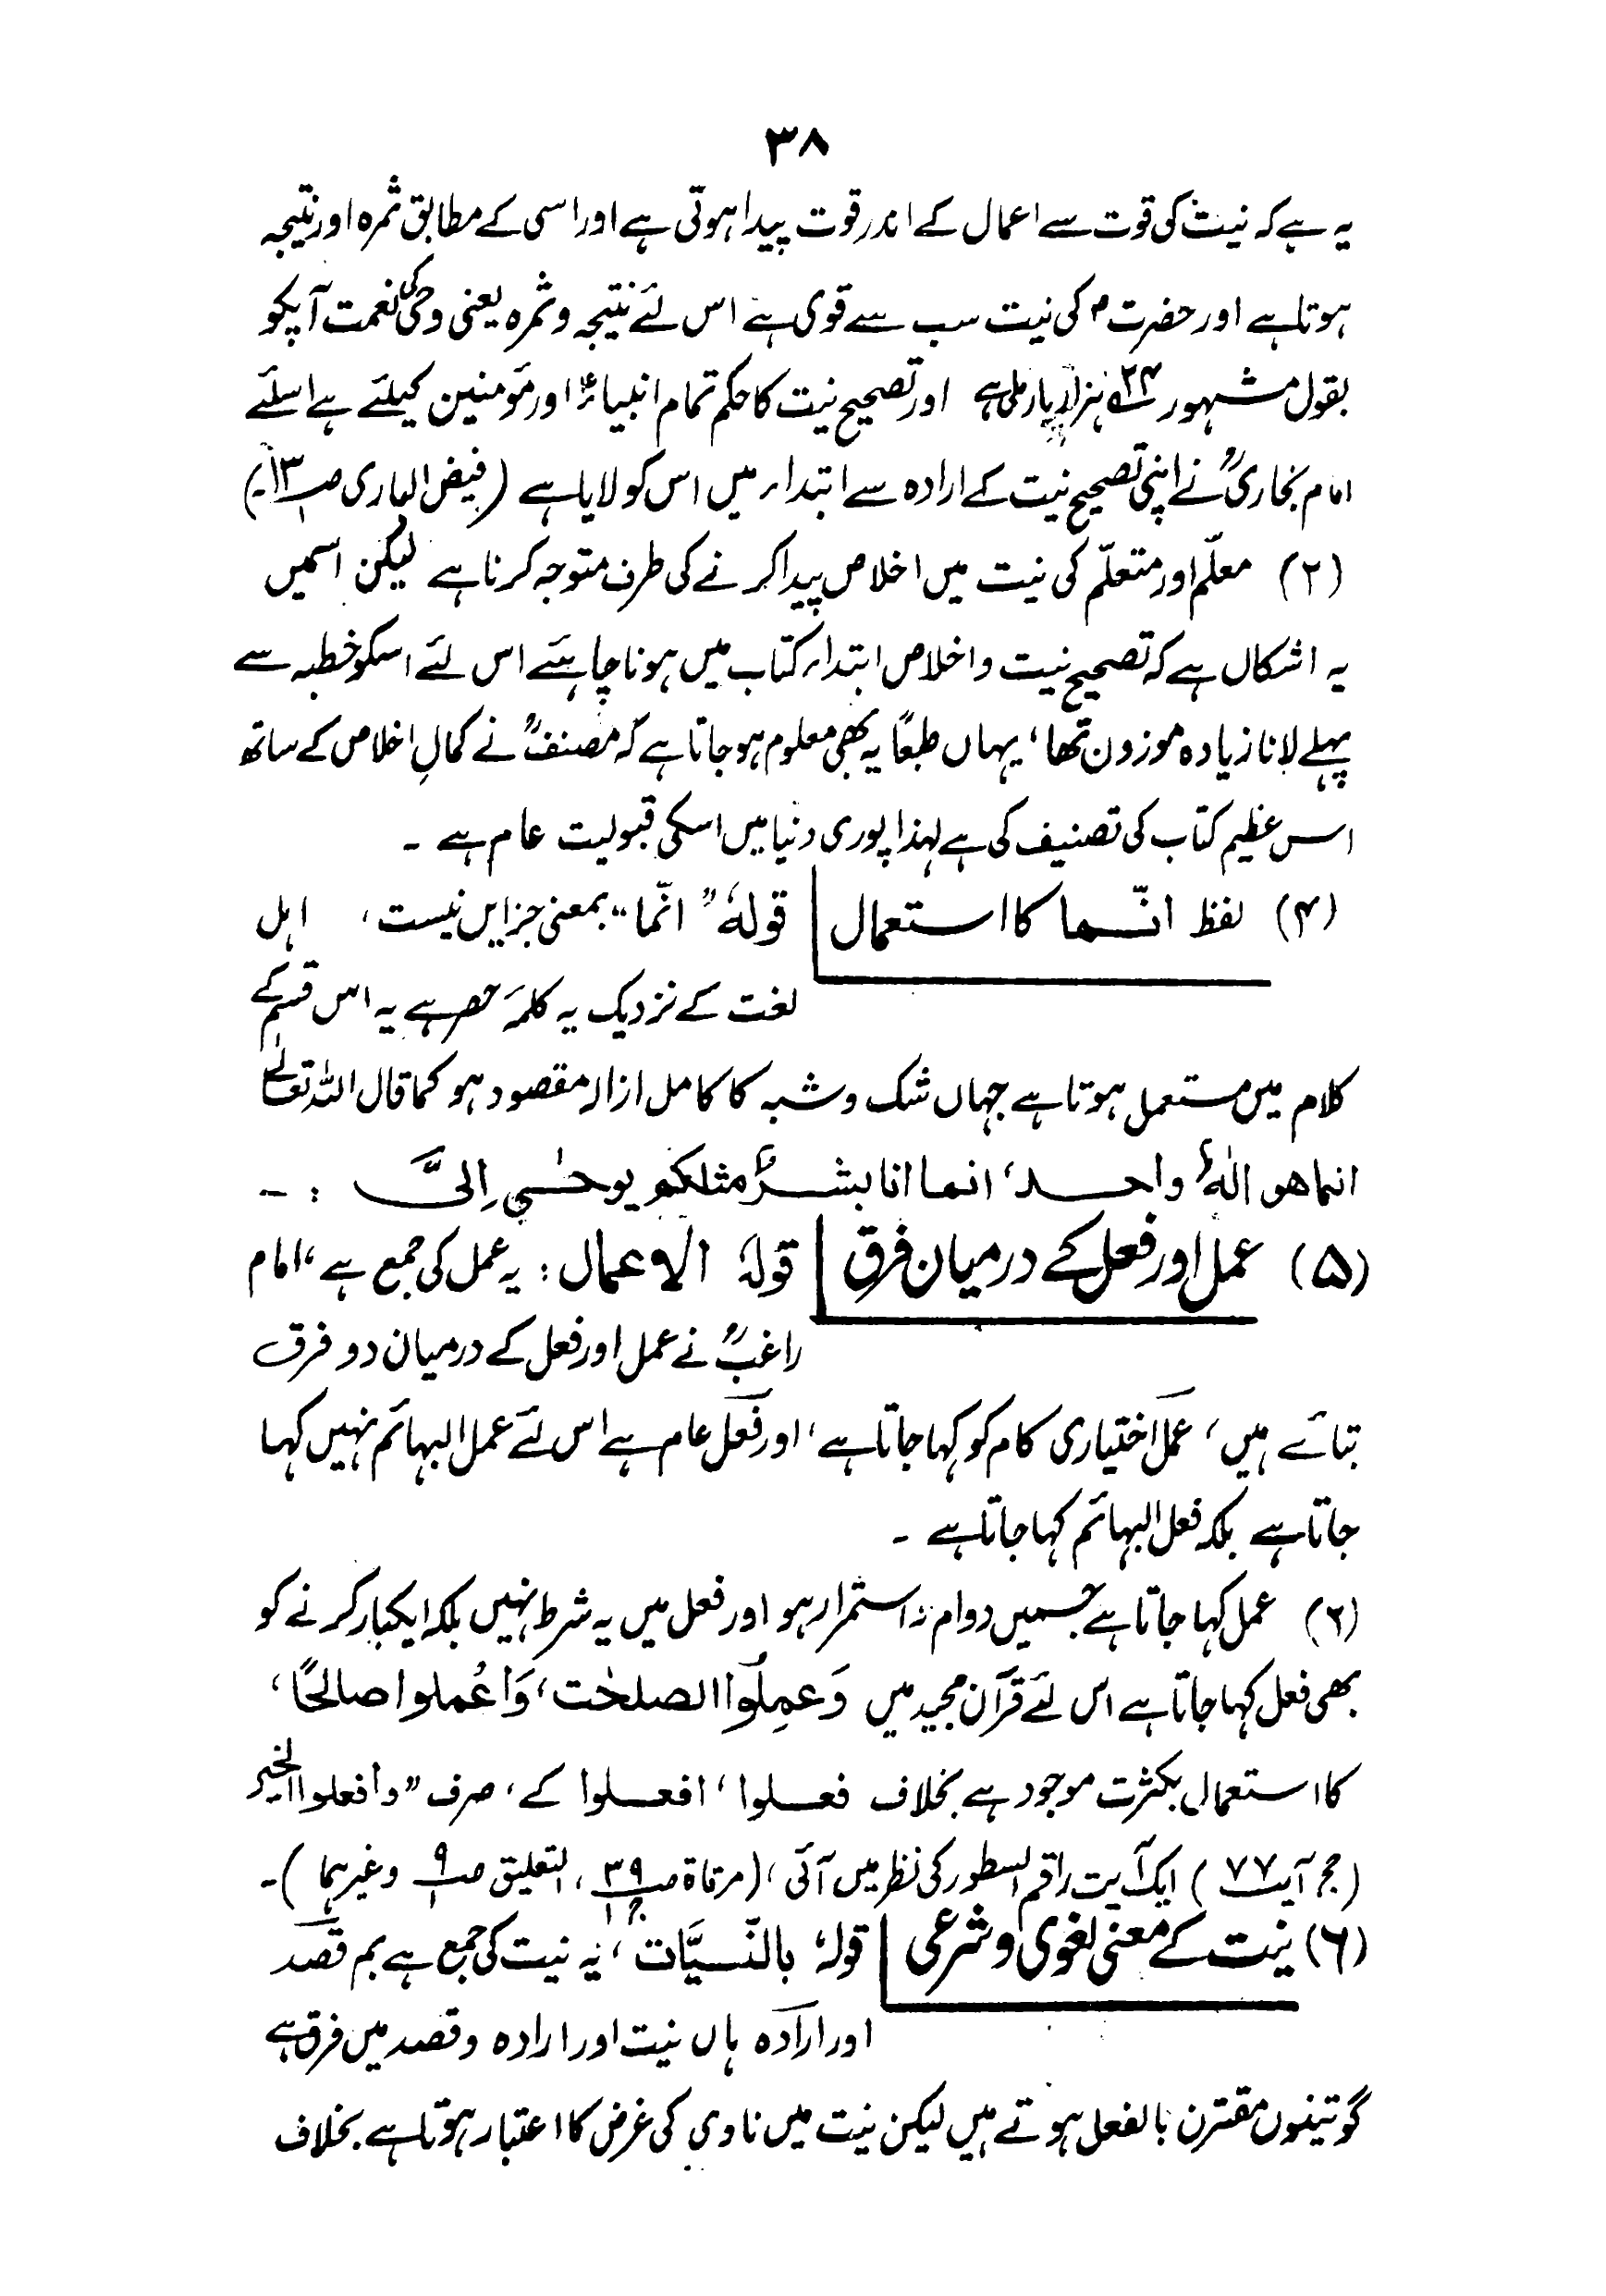 ۳۸
یہ ہے کہ نیت کی قوت سے اعمال کے اندر قوت پیدا ہوتی ہے اور اسی کے مطابق ثمرہ اور نتیجہ
ہوتا ہے اور حضرت ؐ کی نیت سب سے قوی ہے اس لئے نتیجہ و ثمرہ یعنی وحی کی نعمت آپکو
بقول مشہور ۲۴ ہزار بار ملی ہے اور تصحیح نیت کا حکم تمام انبیاءؑ اور مؤمنین کیلئے ہے اسلئے
امام بخاریؒ نے اپنی تصحیح نیت کے ارادہ سے ابتداء میں اس کو لایا ہے (فیض الباری صـ۱۳ـ)
(۲) معلّم اور متعلّم کی نیت میں اخلاص پیدا کرنے کی طرف متوجہ کرنا ہے لیکن اسمیں
یہ اشکال ہے کہ تصحیح نیت و اخلاص ابتداء کتاب میں ہونا چاہئے اس لئے اسکو خطبہ سے
پہلے لانا زیادہ موزون تھا، یہاں طبعًا یہ بھی معلوم ہو جاتا ہے کہ مصنفؒ نے کمالِ اخلاص کے ساتھ
اس عظیم کتاب کی تصنیف کی ہے لہذا پوری دنیا میں اسکی قبولیت عام ہے ۔
(۴) لفظ انّما کا استعمال | قولہٗ ”انّما“ بمعنی جز ایں نیست، اہل
لغت کے نزدیک یہ کلمۂ حصر ہے یہ اس قسم کے
کلام میں مستعمل ہوتا ہے جہاں شک و شبہ کا کامل ازالہ مقصود ہو کما قال اللہ تعالیٰ
انما ھو الٰہٌ واحد، انما انا بشرٌ مثلکم یوحٰی اِلیَّ :۔
(۵) عمل اور فعل کے درمیان فرق | قولہٗ الاعمال : یہ عمل کی جمع ہے، امام
راغبؒ نے عمل اور فعل کے درمیان دو فرق
بتائے ہیں، عمل اختیاری کام کو کہا جاتا ہے، اور فعل عام ہے اس لئے عمل البہائم نہیں کہا
جاتا ہے بلکہ فعل البہائم کہا جاتا ہے ۔
(۲) عمل کہا جاتا ہے جسمیں دوام و استمرار ہو اور فعل میں یہ شرط نہیں بلکہ ایکبار کرنے کو
بھی فعل کہا جاتا ہے اس لئے قرآن مجید میں وَعمِلُوا الصلحٰت، وَاعْملوا صالحًا،
کا استعمال بکثرت موجود ہے بخلاف فعلوا، افعلوا کے، صرف ”وافعلوا الخیر
(حج آیت ۷۷) ایک آیت راقم السطور کی نظر میں آئی، (مرقاۃ صـ۳۹ ج۱، التعلیق صـ۹ وغیرہما)۔
(۶) نیت کے معنی لغوی و شرعی | قولہٗ بالنّیَّات، یہ نیت کی جمع ہے بم قصد
اور ارادہ ہاں نیت اور ارادہ و قصد میں فرق ہے
گو تینوں مقترن بالفعل ہوتے ہیں لیکن نیت میں ناوی کی غرض کا اعتبار ہوتا ہے بخلاف